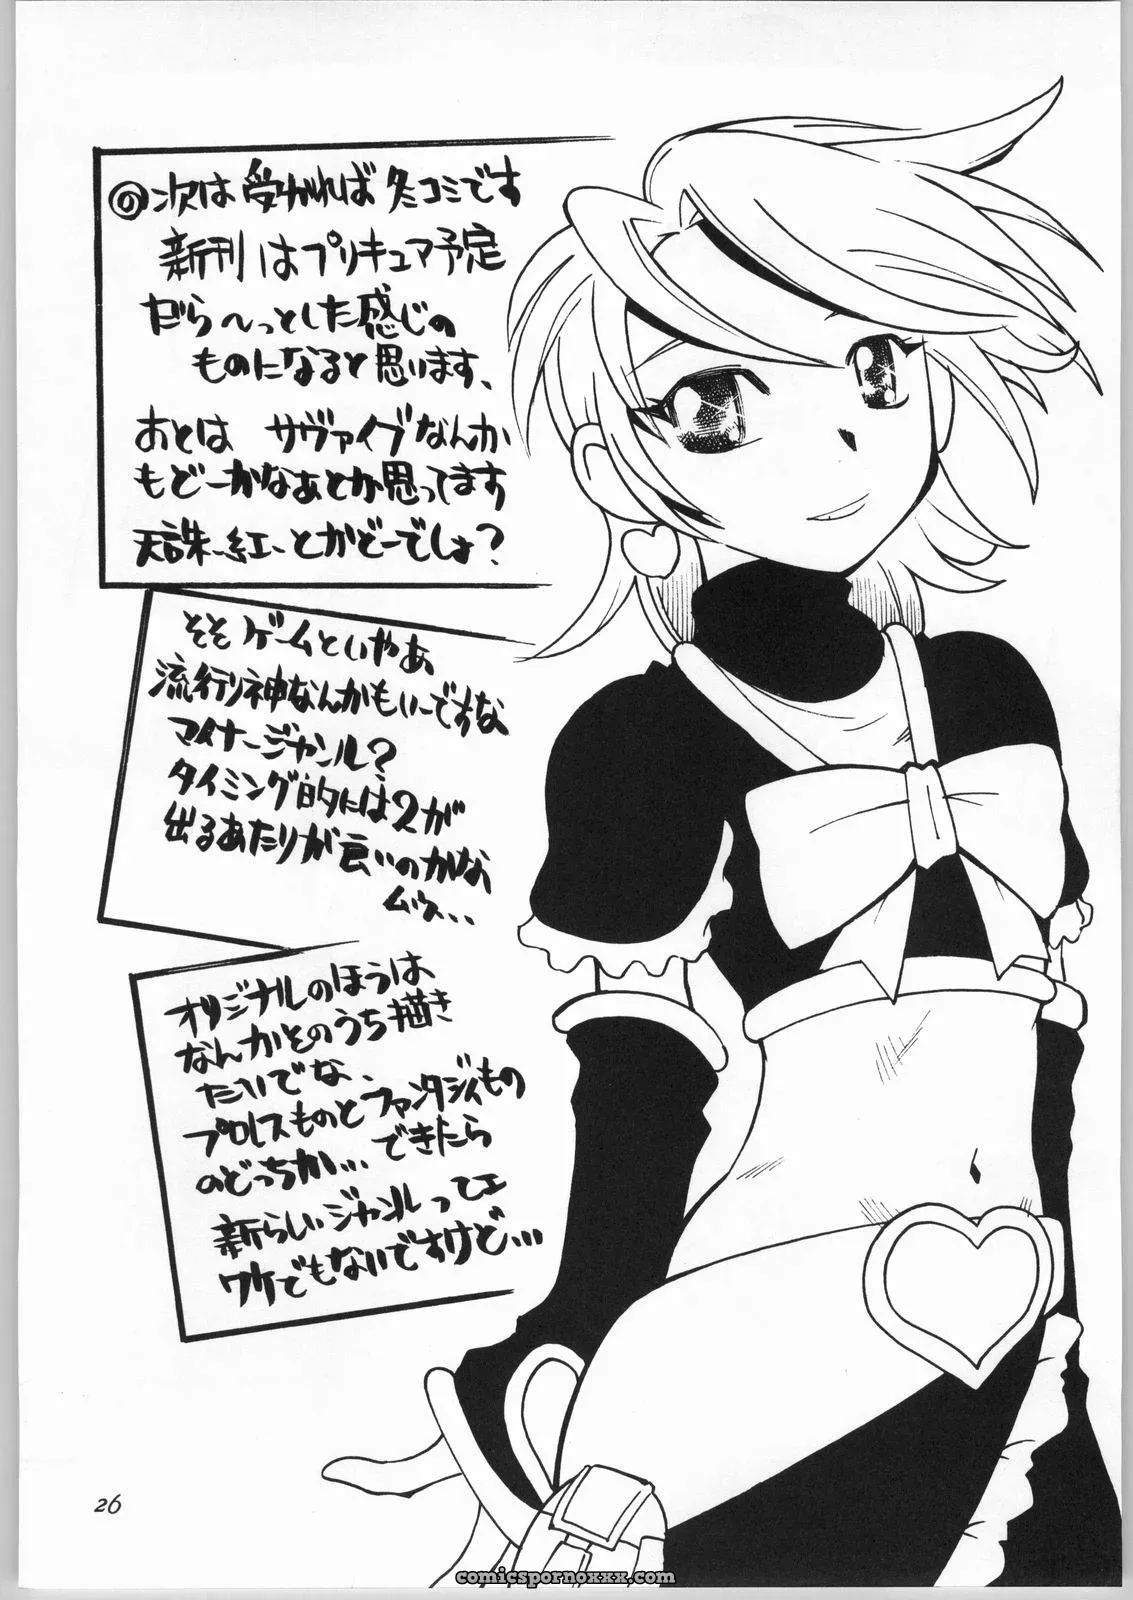 の次は受かれば冬コミです
新刊はプリキュア予定
だら〜っとした感じの
ものになると思います、
おとは サヴァイブなんか
もどーかなぁとか思ってます
天誅紅-とかどーでしょ?
そそ ゲームといやぁ
流行り神なんかもいーですな
マイナージャンル?
タイミング的には2が
出るあたりが良いのかな
ムウ...
オリジナルのほうは
なんかそのうち描き
たいでな、
プロレスものとファンタジィもの
のどっちか... できたら
新らしいジャンルってェ
ワケでもないですけど...
26
comicspornoxxx.com